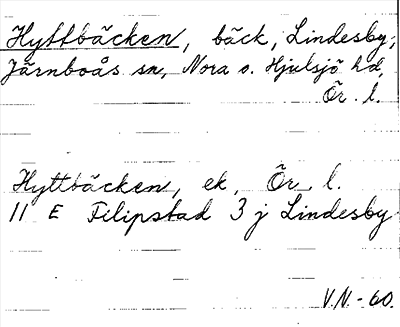 Hyttbäcken, bäck, Lindesby,
Järnboås sn, Nora o. Hjulsjö hd,
Ör. l.
Hyttbäcken, ek, Ör. l.
11 E Filipstad 3 j Lindesby
V.N.-60.